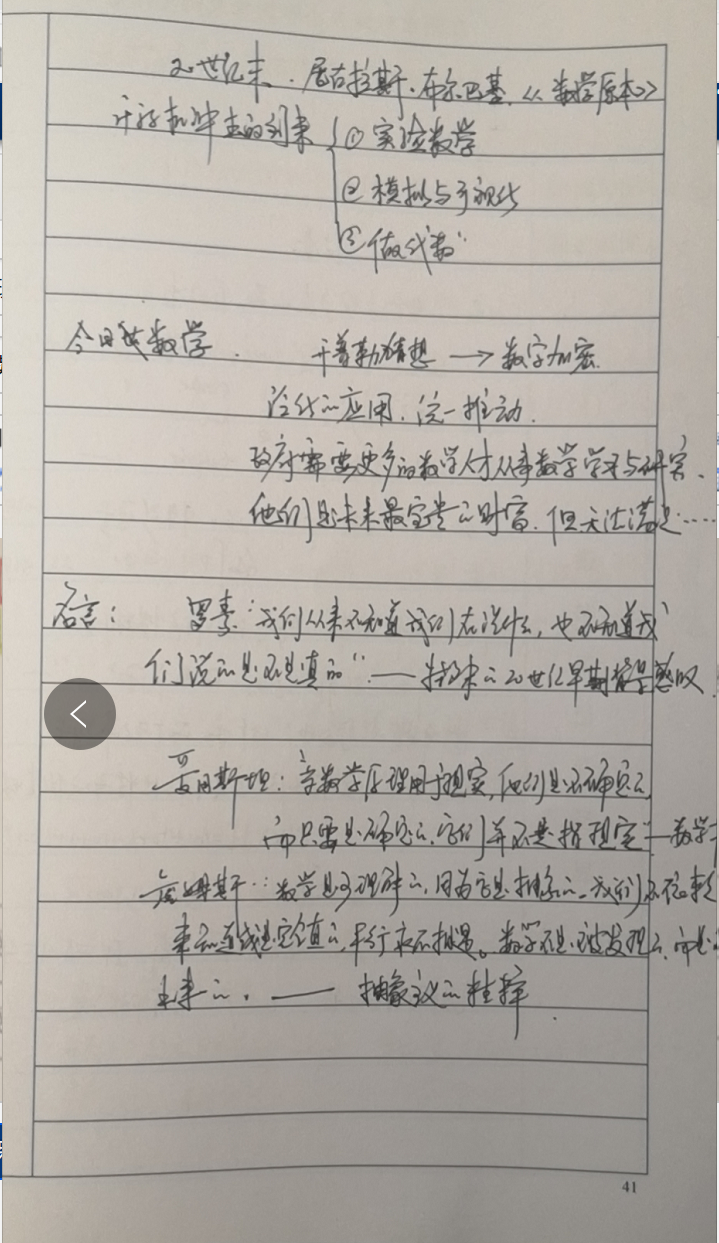 20世纪末、尼古拉斯·布尔巴基.《数学原本》
计算机冲击的到来 ① 实验数学
② 模拟与可视化
③ 做代数"
今日数学. 开普勒猜想 → 数字加密.
泛化的应用.统一推动.
政府需要更多的数学人才从事数学学习与研究、
他们是未来最宝贵的财富.但无法满足……
名言: 罗素:"我们从来不知道我们在说什么,也不知道我
们说的是不是真的"—— 的20世纪早期哲学感叹
爱因斯坦:当数学原理用于现实,他们是不确定的
而只要是确定的、它们并不是指现实"—数学
詹姆斯…:数学是可理解的,因为它是抽象的。我们
来 直线是 值的,平行永不相遇。数学不是被发现的、而是
出来的. —— 抽象 的
41